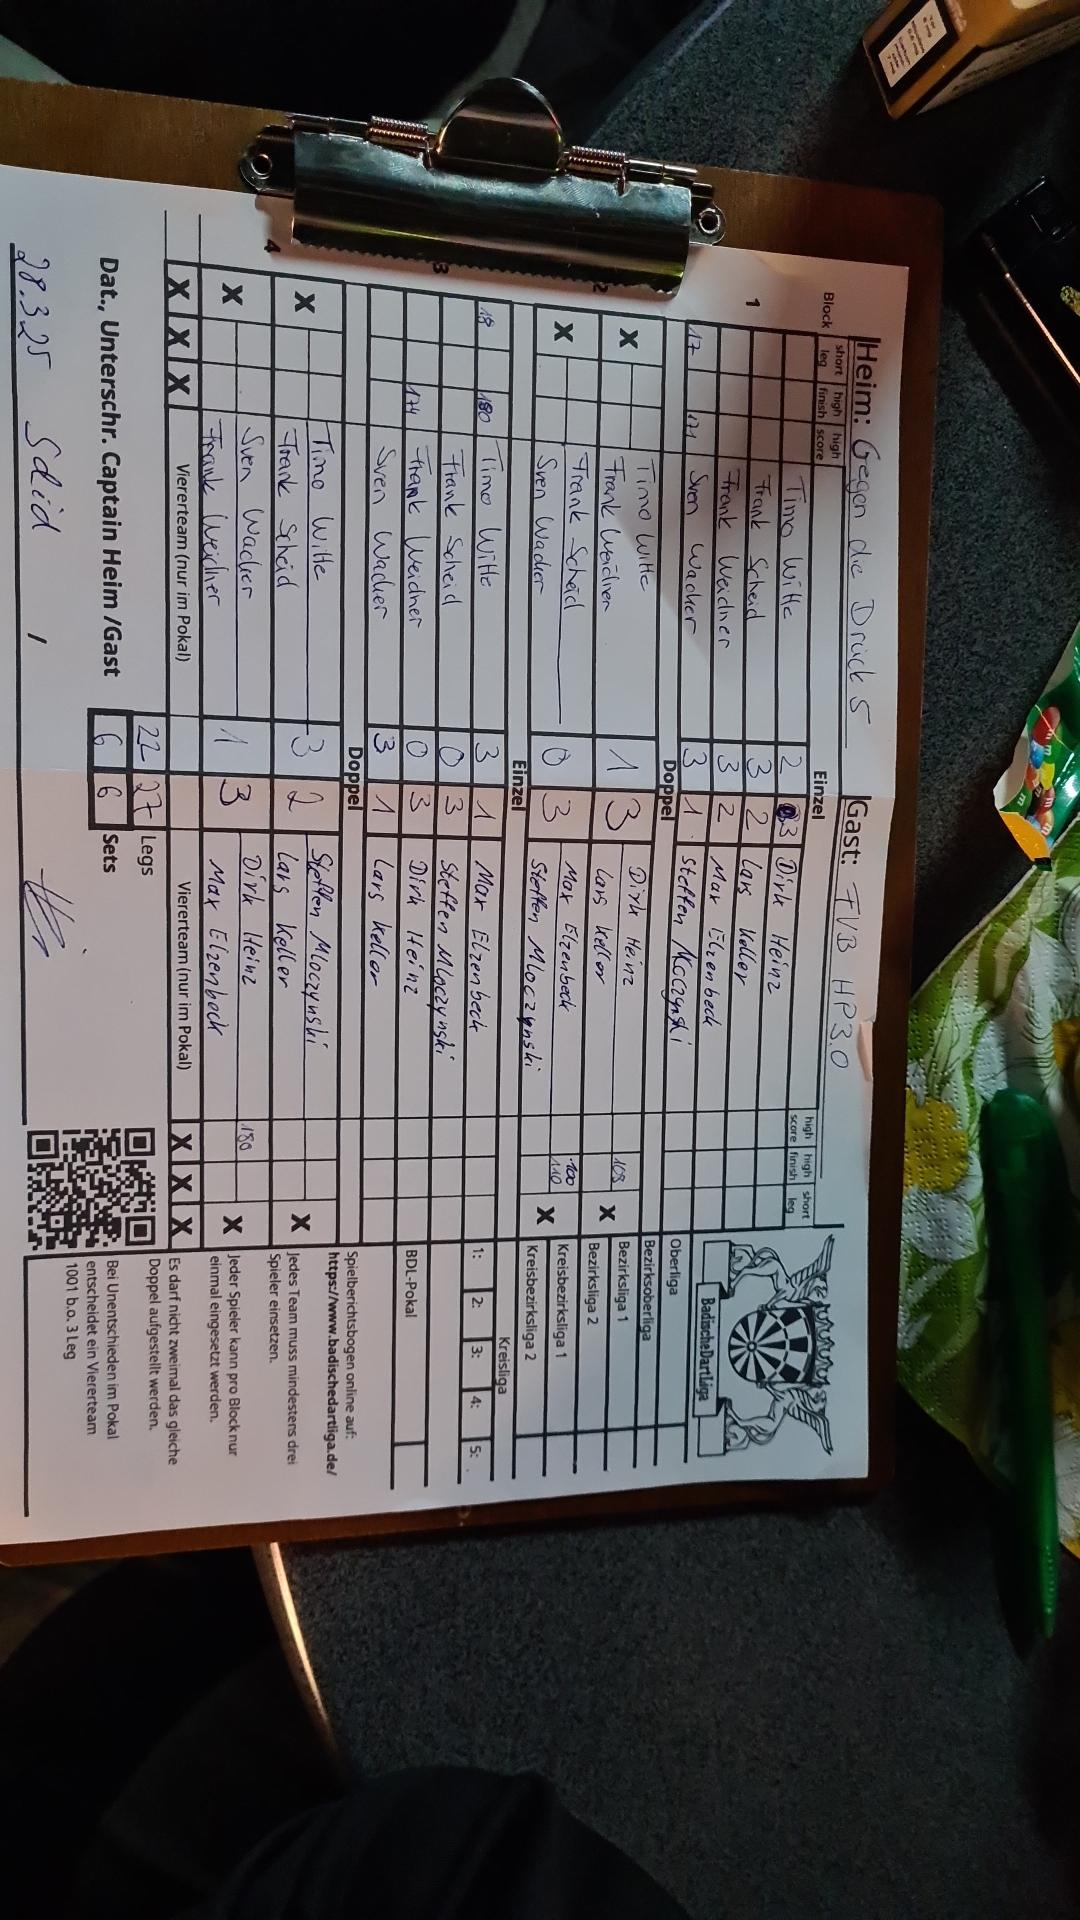 Heim: Gegen die Drück 5 Gast: FVB HP3.0
Block short leg high finish high score Einzel high score high finish short leg
1
Timo Witte 2 3 Dirk Heinz
Frank Scheid 3 2 Lars Keller
Frank Weidner 3 2 Max Elzenbeck
17 171 Sven Wacker 3 1 Steffen Mloczynski
Doppel
2
X Timo Witte 1 3 Dirk Heinz 108 X
Frank Weidner Lars Keller
X Frank Scheid 0 3 Max Elzenbeck 100 110 X
Sven Wacker Steffen Mloczynski
Einzel
3
18 180 Timo Witte 3 1 Max Elzenbeck
Frank Scheid 0 3 Steffen Mloczynski
174 Frank Weidner 0 3 Dirk Heinz
Sven Wacker 3 1 Lars Keller
Doppel
4
X Timo Witte 3 2 Steffen Mloczynski X
Frank Scheid Lars Keller
X Sven Wacker 1 3 Dirk Heinz 180 X
Frank Weidner Max Elzenbeck
X X X Viererteam (nur im Pokal) Viererteam (nur im Pokal) X X X
22 27 Legs
Dat., Unterschr. Captain Heim /Gast 6 6 Sets
28.3.25 Scheid /
BadischeDartLiga
Oberliga
Bezirksoberliga
Bezirksliga 1
Bezirksliga 2
Kreisbezirksliga 1
Kreisbezirksliga 2
Kreisliga
1: 2: 3: 4: 5:
BDL-Pokal
Spielberichtsbogen online auf:
https://www.badischedartliga.de/
Jedes Team muss mindestens drei
Spieler einsetzen.
Jeder Spieler kann pro Block nur
einmal eingesetzt werden.
Es darf nicht zweimal das gleiche
Doppel aufgestellt werden.
Bei Unentschieden im Pokal
entscheidet ein Viererteam
1001 b.o. 3 Leg